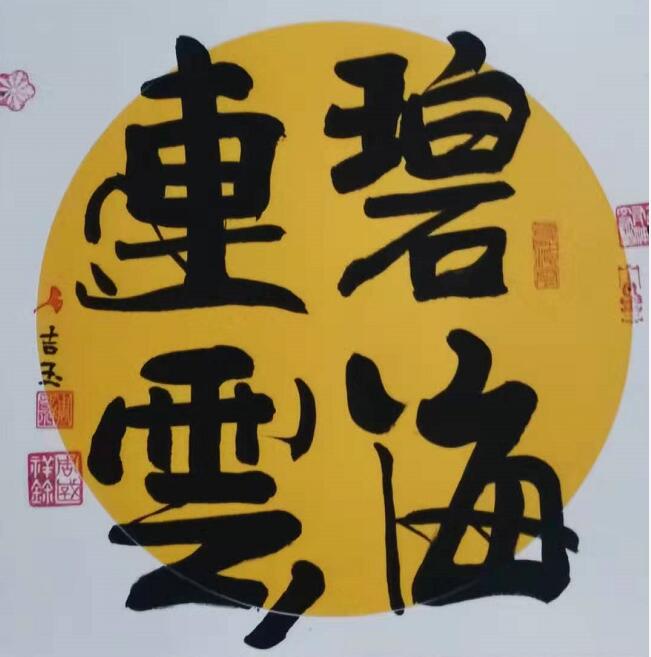 碧海
連雲
吉玉